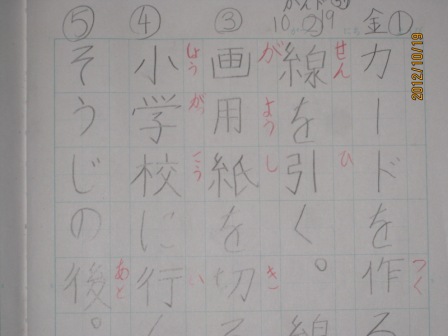 2012/10/19
金①
カードを作る
つく
②
線を引く。線
せん
ひ
③
画用紙を切る
が
よう
し
き
④
小学校に行く
しょう
がっ
こう
い
⑤
そうじの後。
あと